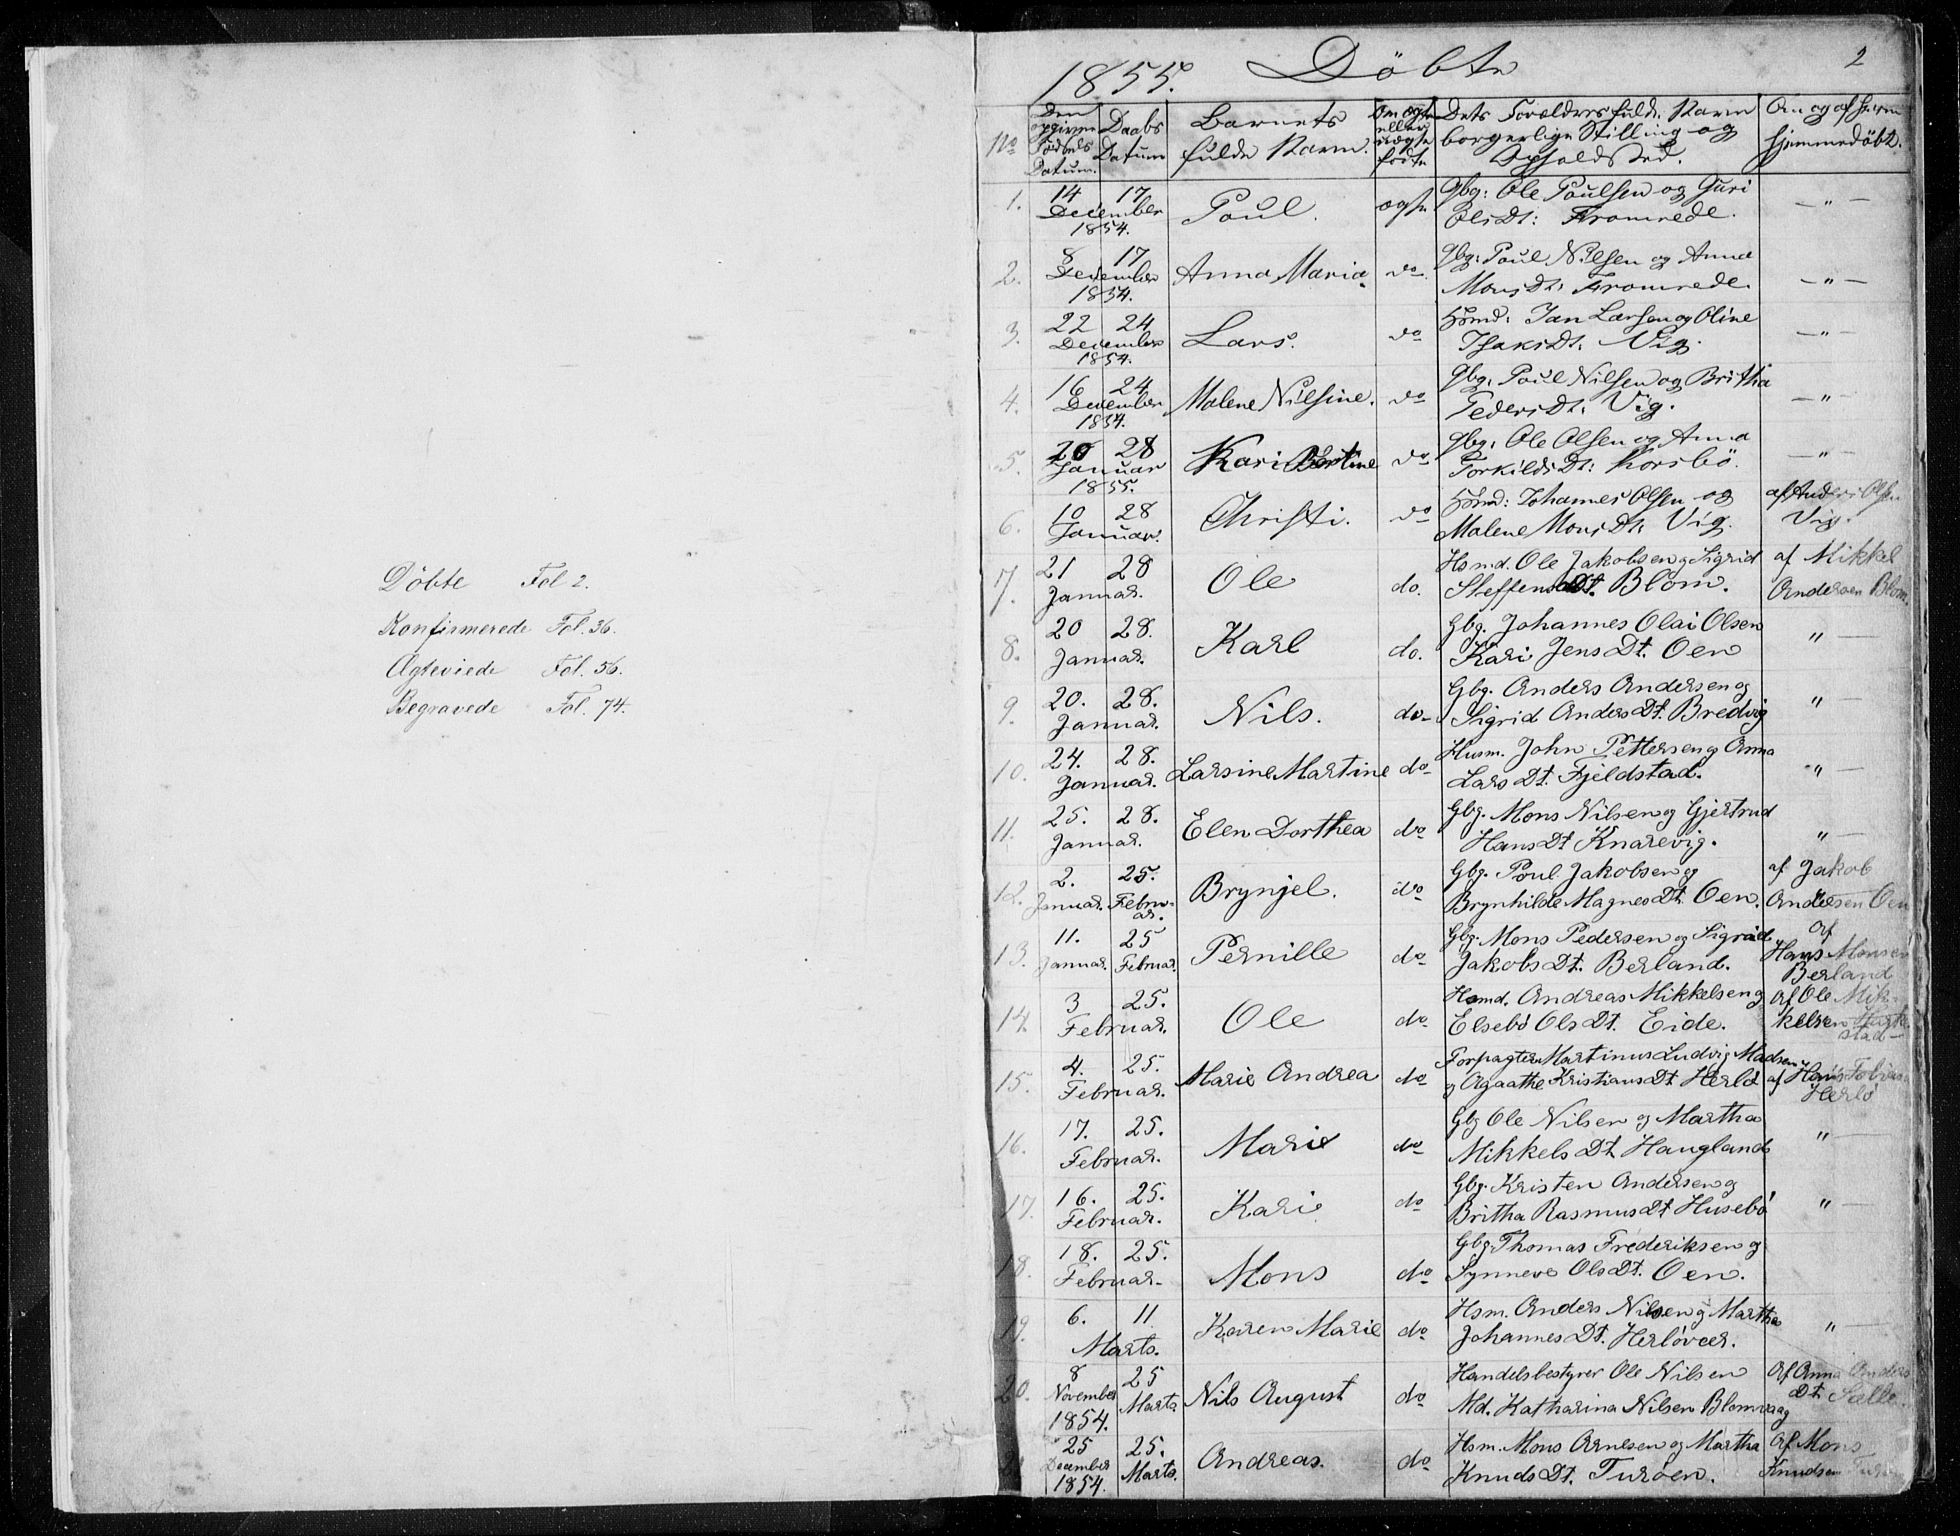 Döbte Fol 2.
Konfirmerede Fol. 36.
Ægteviede Fol. 56.
Begravede Fol. 74.
1855. Döbte 2
No
Den opgivne Födsels Datum.
Daabs Datum
Barnets fulde Navn.
Om ægte eller uægte födte
Dets Forældres fulde Navn borgerlige Stilling og Opholdssted.
Om og af hvem hjemmedöbt.
1. 14 December 1854. 17 Poul. ægte Gbg: Ole Poulsen og Guri
Olsdt: Fromrede. — " —
2. 8 December 1854. 17 Anna Maria. do. Gbg: Poul Nilsen og Anna
Monsdt: Fromrede. — " —
3. 22 December 1854. 24 Lars. do Hsmd: Jan Larsen og Oline
Isaksdt: Vig. — " —
4. 16 December 1854. 24 Malene Nilsine. do Gbg: Poul Nilsen og Britha
Pedersdt: Vig. — " —
5. 20 Januar 1855. 28 Kari Bertine do Gbg: Ole Olsen og Anna
Torkildsdt: Horsbö. — " —
6. 10 Januar. 28 Christi. do Hsmd: Johannes Olsen og af Anders Olsen
Malene Monsdt: Vig. Vig.
7. 21 Januar. 28 Ole do. Hsmd. Ole Jakobsen og Sigrid af Mikkel
Steffensdt. Blom. Andersen Blom.
8. 20 Januar. 28. Karl do. Gbg. Johannes Olai Olsen
Kari Jens Dt. Oen " —
9. 20. Januar. 28. Nils. do— Gbg. Anders Andersen og
Sigrid Anders Dt. Bredvig " —
10. 24. Januar. 28. Larsine Martine do— Husm. John Pettersen og Anna
Lars Dt. Fjeldstad. " —
11. 25. Januar. 28. Elen Dorthea do Gbg. Mons Nilsen og Gjertrud
Hans Dt Knarevig. " —
12. 2. Januar. 25. Februar. Brynjel. do Gbg. Poul Jakobsen og af Jakob
Brynhilde Magnes Dt Oen. Andersen Oen
13. 11. Januar. 25 Februar. Pernille do Gbg. Mons Pedersen og Sigrid af
Jakobs Dt. Berland. Hans Monsen Berland
14. 3 Februar. 25. Ole do Hsmd. Andreas Mikkelsen og af Ole Mik-
Elsebö Ols Dt. Eide. kelsen
15. 4. Februar. 25. Marie Andrea do Forpagter Martinus Ludvig Madsen
og Agaathe Kristians Dt Herlö af Hans Tobias Herlö
16. 17. Februar. 25. Marie do Gbg Ole Nilsen og Martha
Mikkels Dt Haugland " —
17. 16. Februar. 25. Kari do Gbg. Kristen Andersen og
Britha Rasmus Dt Husebö " —
18. 18. Februar. 25. Mons do Gbg Thomas Frederiksen og
Synneve Ols Dt. Oen.
19. 6. Marts. 11 Karen Marie do Hsm. Anders Nilsen og Martha
Johannes Dt. Herlöveer. " —
20. 8 November 1854. 25 Marts Nils August do Handelsbestyrer Ole Nilsen Af Anna Anders
Md. Katharina Nilsen Blomvaag Dt Sælle.
25 December 1854. 25. Marts. Andreas. do Hsm. Mons Arnesen og Martha Af Mons
Knuds Dt. Turöen. Knudsen